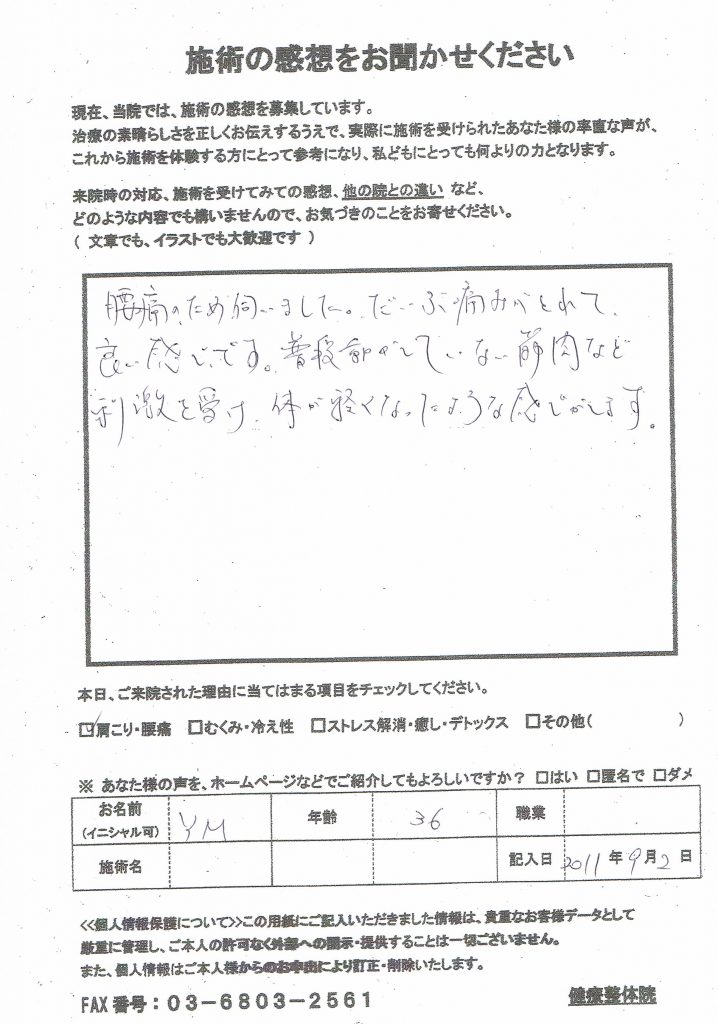 施術の感想をお聞かせください
現在、当院では、施術の感想を募集しています。
治療の素晴らしさを正しくお伝えするうえで、実際に施術を受けられたあなた様の率直な声が、
これから施術を体験する方にとって参考になり、私どもにとっても何よりの力となります。
来院時の対応、施術を受けてみての感想、他の院との違い など、
どのような内容でも構いませんので、お気づきのことをお寄せください。
( 文章でも、イラストでも大歓迎です )
腰痛のため伺いました。だいぶ痛みがとれて、
良い感じです。普段動かしていない筋肉など
刺激を受け、体が軽くなったような感じがします。
本日、ご来院された理由に当てはまる項目をチェックしてください。
☑肩こり・腰痛 □むくみ・冷え性 □ストレス解消・癒し・デトックス □その他( )
※ あなた様の声を、ホームページなどでご紹介してもよろしいですか? □はい □匿名で □ダメ
お名前 (イニシャル可) YM 年齢 36 職業
施術名 記入日 2011 年 9 月 2 日
<<個人情報保護について>>この用紙にご記入いただきました情報は、貴重なお客様データとして
厳重に管理し、ご本人の許可なく外部への開示・提供することは一切ございません。
また、個人情報はご本人様からのお申出により訂正・削除いたします。
FAX 番号:03-6803-2561 健療整体院